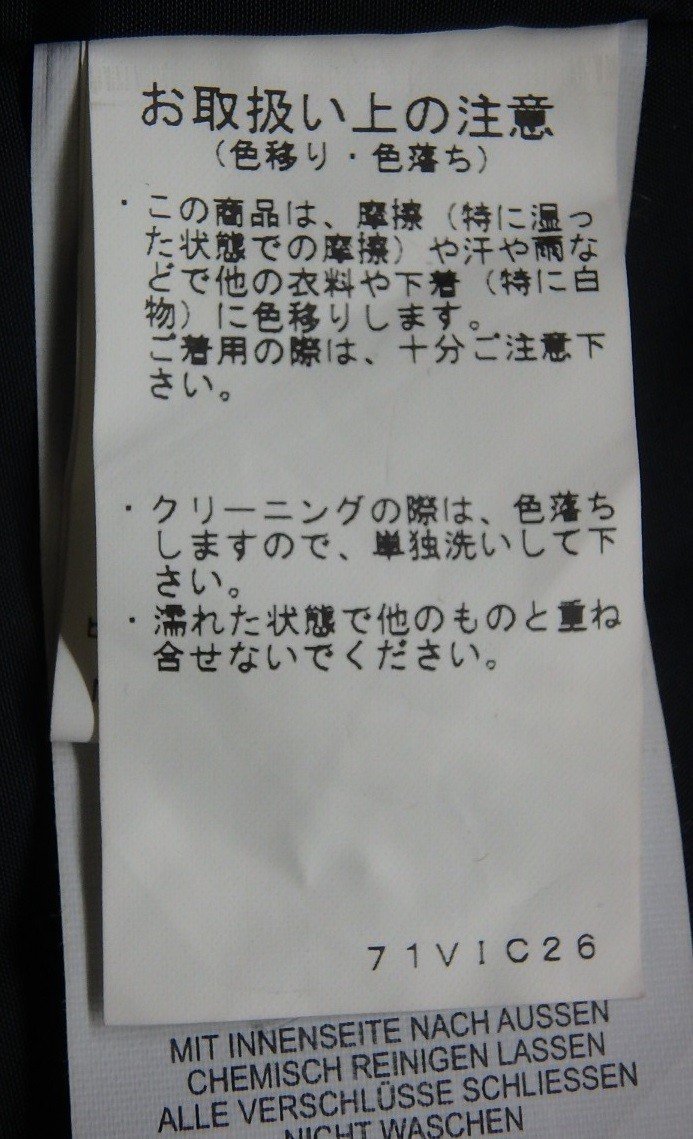 お取扱い上の注意
（色移り・色落ち）
・この商品は、摩擦（特に湿っ
た状態での摩擦）や汗や雨な
どで他の衣料や下着（特に白
物）に色移りします。
ご着用の際は、十分ご注意下
さい。
・クリーニングの際は、色落ち
しますので、単独洗いして下
さい。
・濡れた状態で他のものと重ね
合せないでください。
71VIC26
MIT INNENSEITE NACH AUSSEN
CHEMISCH REINIGEN LASSEN
ALLE VERSCHLÜSSE SCHLIESSEN
NICHT WASCHEN